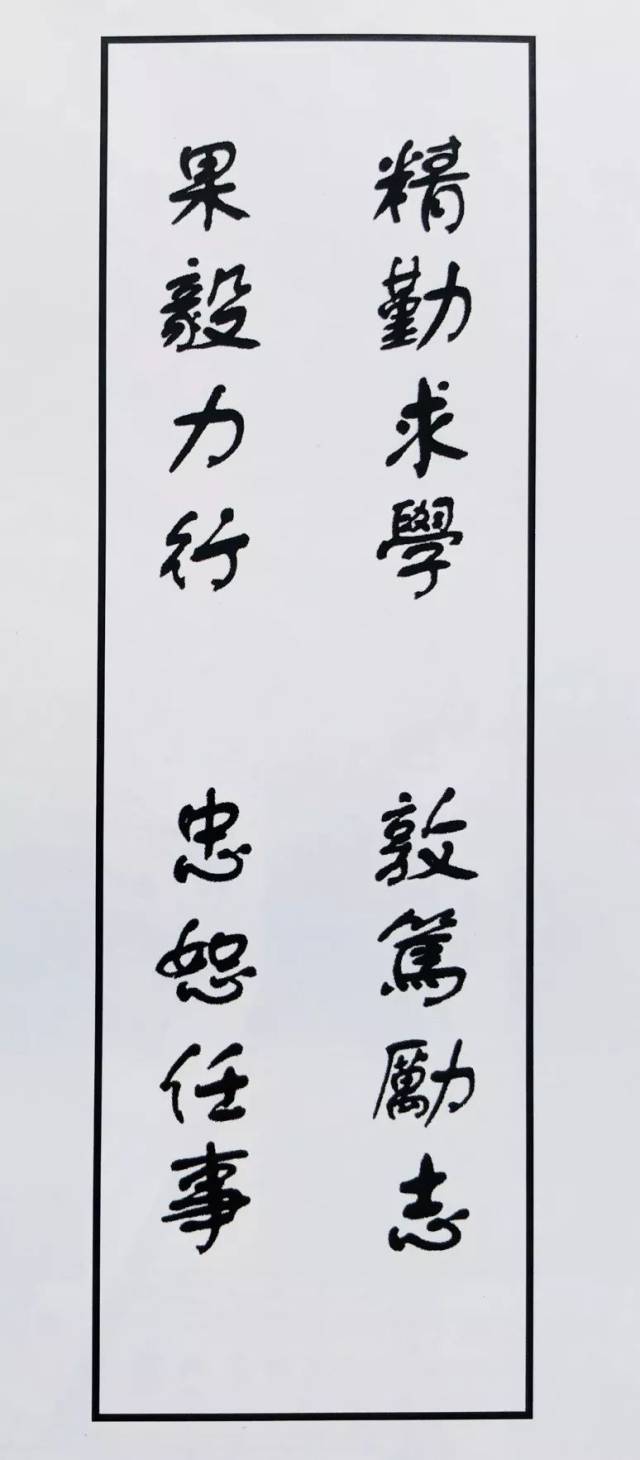 精勤求學 敦篤勵志
果毅力行 忠恕任事